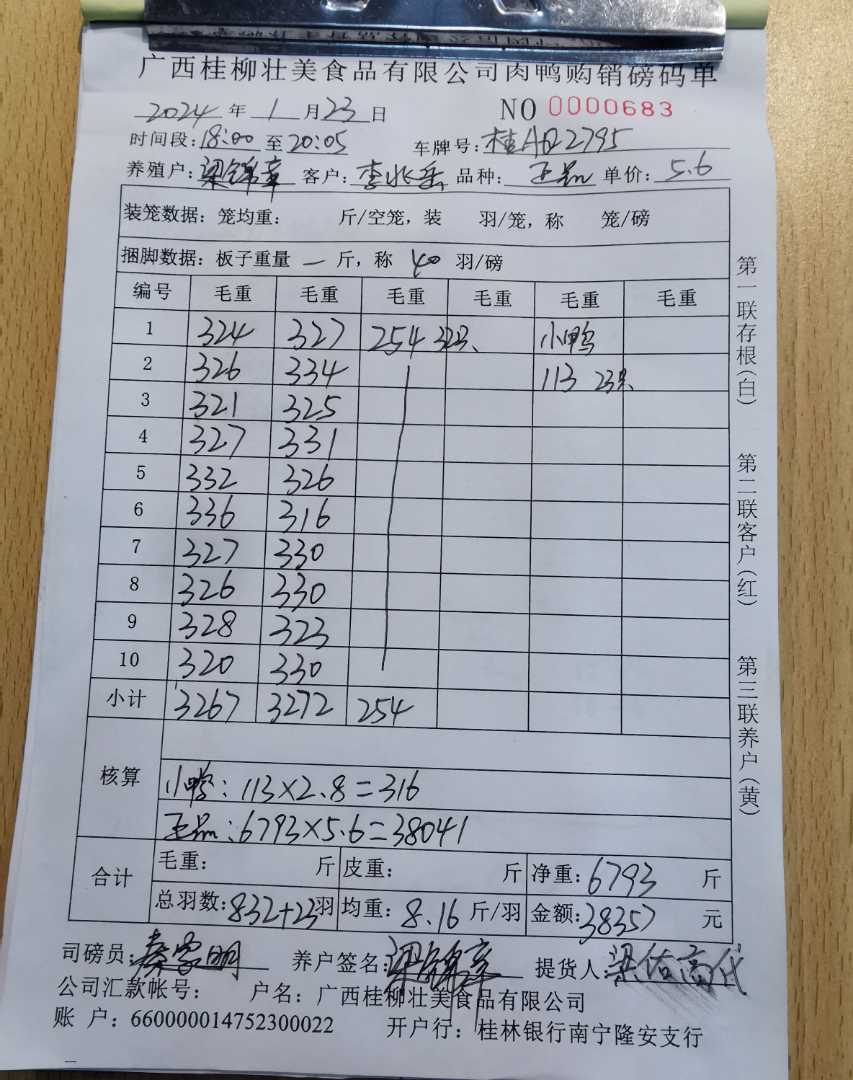 广西桂柳壮美食品有限公司肉鸭购销磅码单
2024年1月23日 NO 0000683
时间段:18:00至20:05 车牌号:桂AQ2795
养殖户:梁锦章 客户:李兆岳 品种:正品 单价:5.6
装笼数据: 笼均重: 斤/空笼,装 羽/笼,称 笼/磅
捆脚数据: 板子重量 一 斤,称 40 羽/磅
编号 毛重 毛重 毛重 毛重 毛重 毛重
1 324 327 254 32只 小鸭
2 326 334 113 23只
3 321 325
4 327 331
5 332 326
6 336 316
7 327 330
8 326 330
9 328 323
10 320 330
小计 3267 3272 254
核算
小鸭:113×2.8=316
正品:6793×5.6=38041
合计
毛重: 斤 皮重: 斤 净重:6793 斤
总羽数:832+23羽 均重:8.16斤/羽 金额:38357元
司磅员:秦家明 养户签名:梁锦章 提货人:梁佑高代
公司汇款帐号: 户名:广西桂柳壮美食品有限公司
账 户:660000014752300022 开户行:桂林银行南宁隆安支行
第一联存根(白)
第二联客户(红)
第三联养户(黄)